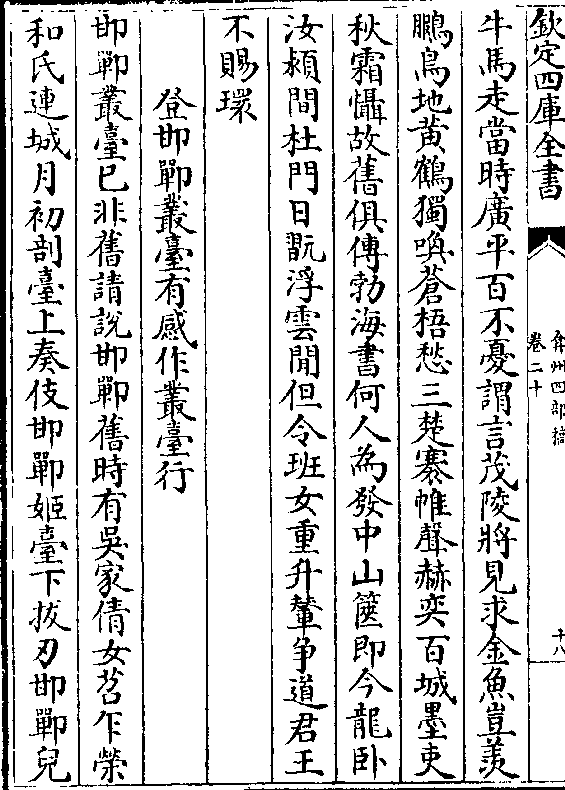 欽定四庫全書
弇州四部稿
卷二十
十八
牛馬走當時廣平百不憂謂言茂陵將見求金魚豈羨
鵬鳥地黄鶴獨喚蒼梧愁三楚褰帷聲赫奕百城墨吏
秋霜懾故舊俱傳勃海書何人為發中山篋即今龍卧
汝潁間杜門日翫浮雲閒但令班女重升輦爭道君王
不賜環
登邯鄲叢臺有感作叢臺行
邯鄲叢臺已非舊請說邯鄲舊時有吳家倩女苕乍榮
和氏連城月初剖臺上奏伎邯鄲姬臺下拔刃邯鄲兒